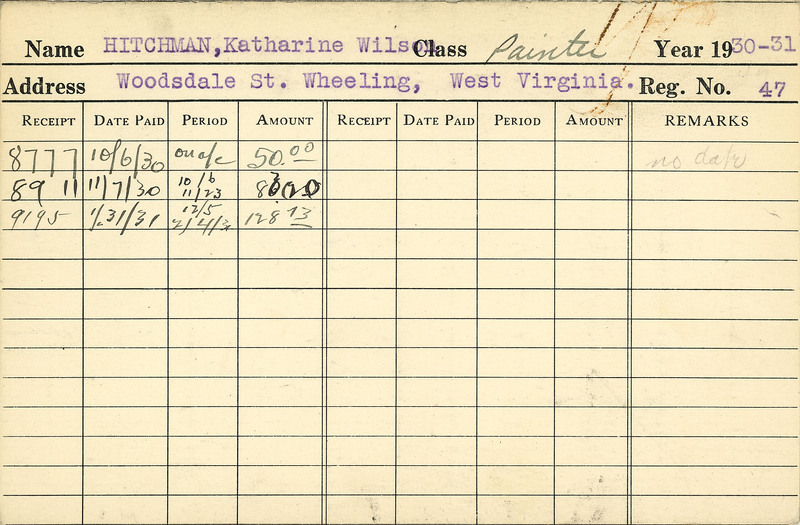 Name HITCHMAN,Katharine Wilson Class Painter Year 1930-31
Address Woodsdale St. Wheeling, West Virginia. Reg. No. 47
RECEIPT DATE PAID PERIOD AMOUNT RECEIPT DATE PAID PERIOD AMOUNT REMARKS
8777 10/6/30 on a/c 50.00 no date
8911 11/7/30 10/6 11/23
9195 1/31/31 12/5 128.73